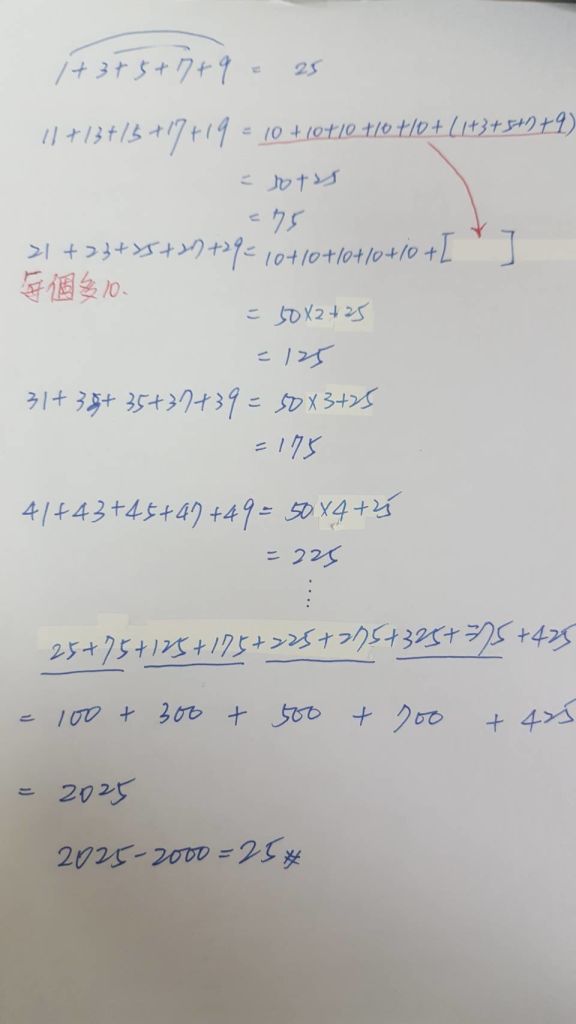 1+3+5+7+9 = 25
11+13+15+17+19 = 10+10+10+10+10+(1+3+5+7+9)
= 50+25
= 75
21+23+25+27+29= 10+10+10+10+10+[ ]
每個多10.
= 50×2+25
= 125
31+33+35+37+39 = 50×3+25
= 175
41+43+45+47+49 = 50×4+25
= 225
⋮
25+75+125+175+225+275+325+375+425
= 100 + 300 + 500 + 700 + 425
= 2025
2025-2000=25#